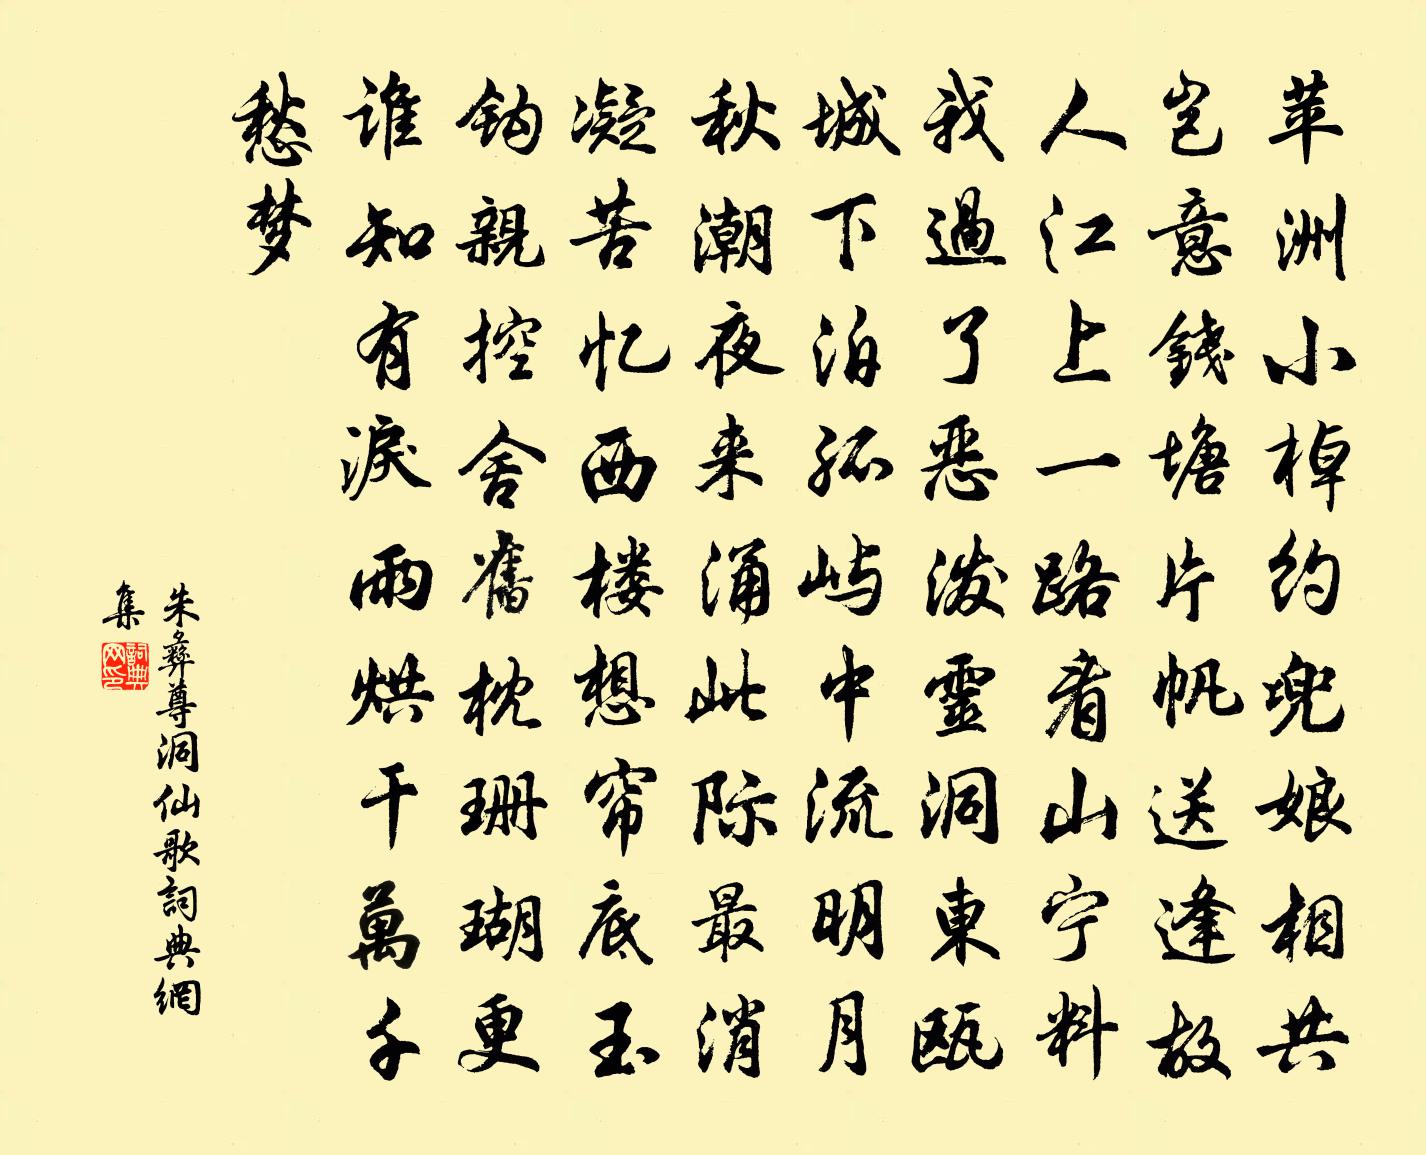 苹洲小棹约兜娘相共
岂意錢塘片帆送逢故
人江上一路看山宁料
我過了恶溪靈洞東瓯
城下泊孤屿中流明月
秋潮夜来涌此际最消
凝苦忆西楼想帘底玉
钩親控舍舊枕珊瑚更
谁知有淚雨烘干萬千
愁梦
朱彝尊洞仙歌詞典網
集
詞典
网印